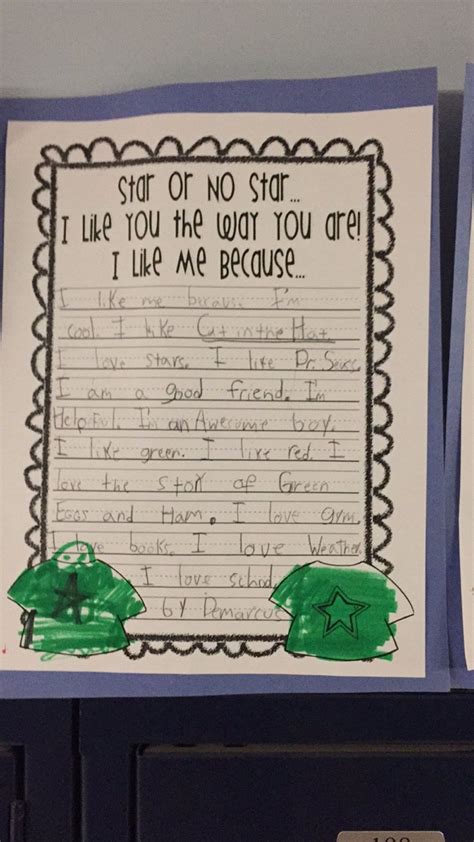 Star or No Star...
I Like You the Way You are!
I Like Me Because...
I like me because I'm
cool. I like Cat in the Hat.
I love stars. I like Dr. Seuss.
I am a good friend. I'm
Helpful. I'm an Awesome boy.
I like green. I like red. I
love the story of Green
Eggs and Ham. I love gym.
I love books. I love Weather.
I love school.
by Demarcus